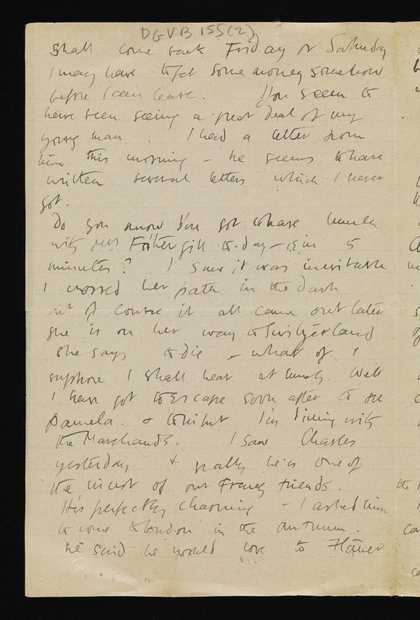 DGVB 155(2)
shall come back Friday or Saturday
I may have to get some money somehow
before I can leave. You seem to
have been seeing a great deal of my
young man. I had a letter from
him this morning – he seems to have
written several letters which I never
got.
Do you know I've got to have lunch
with Mrs Fothergill to-day – in 5
minutes? I saw it was inevitable
I crossed her path in the dark
of course it all came out later
she is on her way to Switzerland
she says to die – what of I
suppose I shall hear at lunch. Well
I have got to escape soon after to see
Pamela. & tonight I'm dining with
the Marchands. I saw Charles
yesterday & really he is one of
the nicest of our French friends.
He's perfectly charming – I asked him
to come to London in the autumn.
he said he would love to flâner